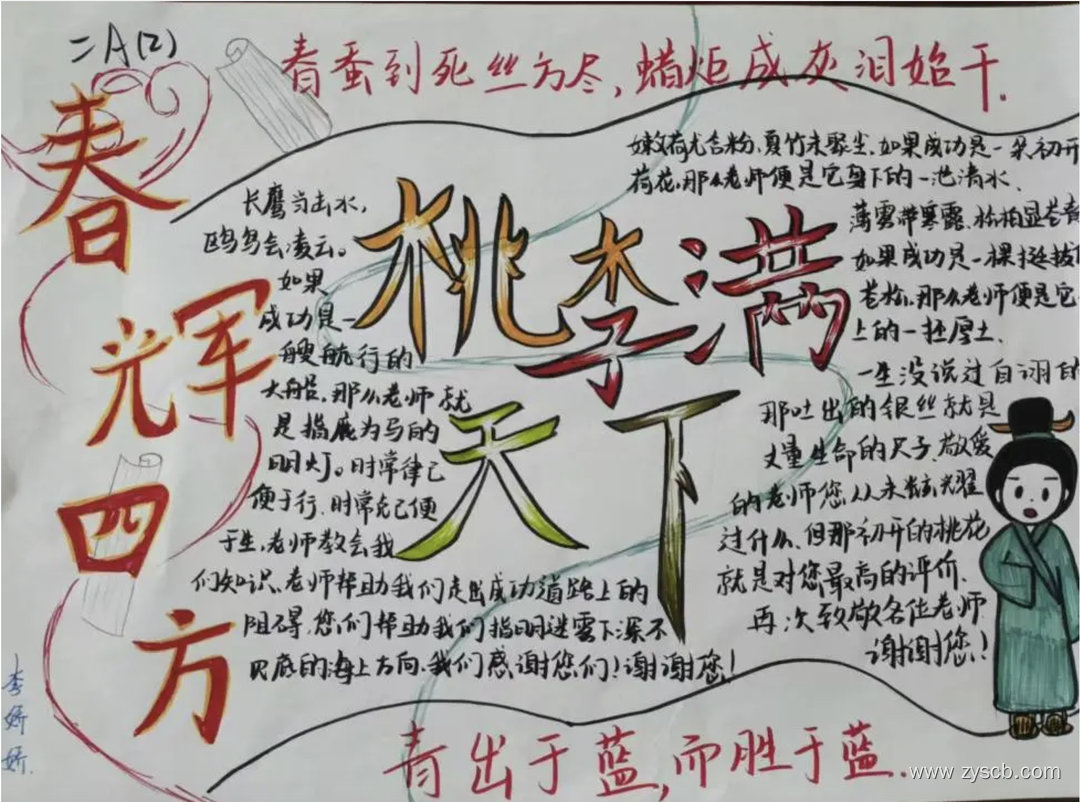 二A(2)
春蚕到死丝方尽,蜡炬成灰泪始干.
春光辉四方
桃李满
天下
长鹰当击水,
鸥鸟会凌云。
如果
成功是一
艘航行的
大船,那么老师就
是指鹿为马的
明灯。时常律己
便于行,时常克己便
于生,老师教会我
们知识,老师帮助我们走出成功道路上的
阻碍,您们帮助我们指明迷雾下深不
见底的海上方向,我们感谢您们!谢谢您!
嫩荷尤含粉,夏竹未聚尘.如果成功是一朵初开
荷花,那么老师便是它身下的一池清水.
薄雾带寒露,松柏显苍
如果成功是一棵挺拔
苍松,那么老师便是它
上的一抔厚土.
一生没说过自诩的
那吐出的银丝就是
丈量生命的尺子.敬爱
的老师您从未炫耀
过什么,但那初开的桃花
就是对您最高的评价.
再次致敬各位老师
谢谢您!
青出于蓝,而胜于蓝.
李娇娇.
www.zyscb.com